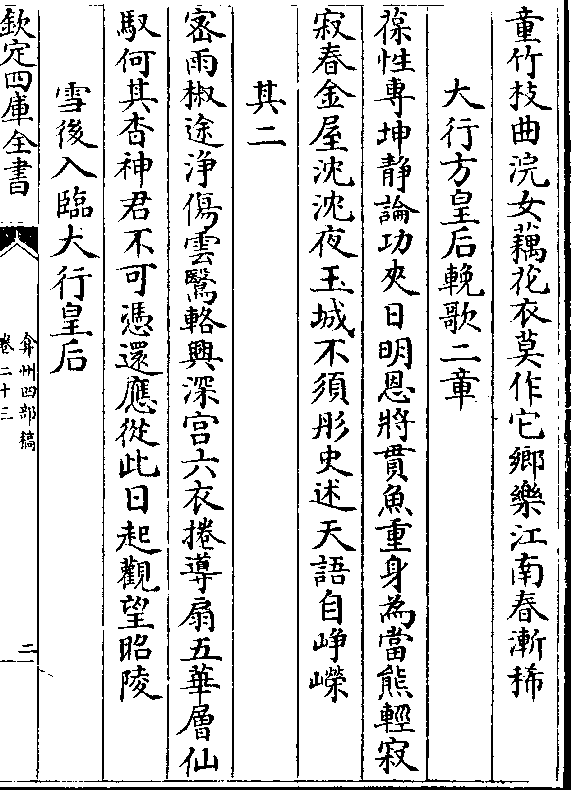 童竹枝曲浣女藕花衣莫作它鄉樂江南春漸稀
大行方皇后輓歌二章
葆性專坤靜論功夾日明恩將貫魚重身為當熊輕寂
寂春金屋沈沈夜玉城不須彤史述天語自崢嶸
其二
密雨椒途净傷雲鷖輅興深宫六衣捲導扇五華層仙
馭何其杳神君不可憑還應從此日起觀望昭陵
雪後入臨大行皇后
欽定四庫全書
弇州四部稿
卷二十三
二